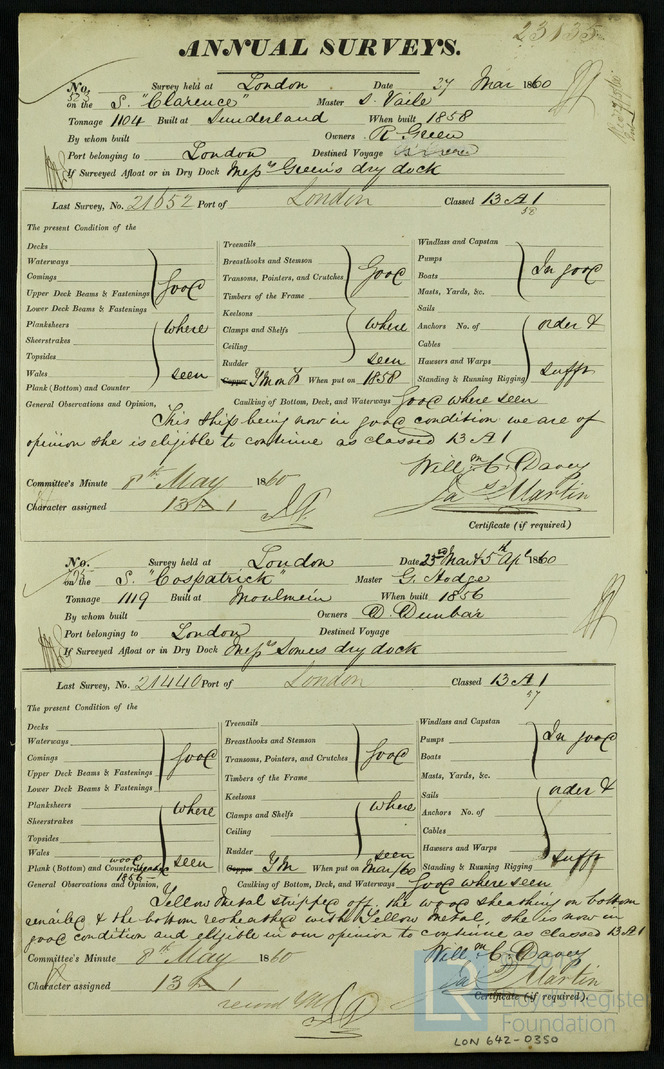 23135
ANNUAL SURVEYS.
No. 523 Survey held at London Date 27 Mar 1860
on the S. "Clarence" Master J. Vaile
Tonnage 1104 Built at Sunderland When built 1858
By whom built Owners R Green
Port belonging to London Destined Voyage
If Surveyed Afloat or in Dry Dock Messrs Green's dry dock
Last Survey, No. 21652 Port of London Classed 13 A 1
58
The present Condition of the
Decks
Waterways
Comings
Upper Deck Beams & Fastenings
Lower Deck Beams & Fastenings
Planksheers
Sheerstrakes
Topsides
Wales
Plank (Bottom) and Counter
good
where
seen
Treenails
Breasthooks and Stemson
Transoms, Pointers, and Crutches
Timbers of the Frame
Keelsons
Clamps and Shelfs
Ceiling
Rudder
good
where
seen
Copper YM on F When put on 1858
Windlass and Capstan
Pumps
Boats
Masts, Yards, &c.
Sails
Anchors No. of
Cables
Hawsers and Warps
Standing & Running Rigging
In good
order &
sufft
General Observations and Opinion, Caulking of Bottom, Deck, and Waterways good where seen
This ship being now in good condition we are of
opinion she is eligible to continue as classed 13 A 1
Willm C. Davey
Jas Martin
Committee's Minute 8th May 1860
Character assigned 13 A 1
Certificate (if required)
No. Survey held at London Date 23rd Mar & 5th Apl 1860
on the S. "Cospatrick" Master G. Hodge
Tonnage 1119 Built at Moulmein When built 1856
By whom built Owners D. Dunbar
Port belonging to London Destined Voyage
If Surveyed Afloat or in Dry Dock Messrs Somes dry dock
Last Survey, No. 21440 Port of London Classed 13 A 1
57
The present Condition of the
Decks
Waterways
Comings
Upper Deck Beams & Fastenings
Lower Deck Beams & Fastenings
Planksheers
Sheerstrakes
Topsides
Wales
Plank (Bottom) and Counter
good
where
seen
wood
1856
Treenails
Breasthooks and Stemson
Transoms, Pointers, and Crutches
Timbers of the Frame
Keelsons
Clamps and Shelfs
Ceiling
Rudder
good
where
seen
Copper YM When put on Mar/60
Windlass and Capstan
Pumps
Boats
Masts, Yards, &c.
Sails
Anchors No. of
Cables
Hawsers and Warps
Standing & Running Rigging
In good
order &
sufft
General Observations and Opinion, Caulking of Bottom, Deck, and Waterways good where seen
Yellow metal stripped off, the wood sheathing on bottom
renailed & the bottom resheathed with Yellow Metal, she is now in
good condition and eligible in our opinion to continue as classed 13 A 1
Willm C. Davey
Jas Martin
Committee's Minute 8th May 1860
Character assigned 13 A 1
Certificate (if required).
record YM
LR
Lloyd's Register
Foundation
LON 642-0350